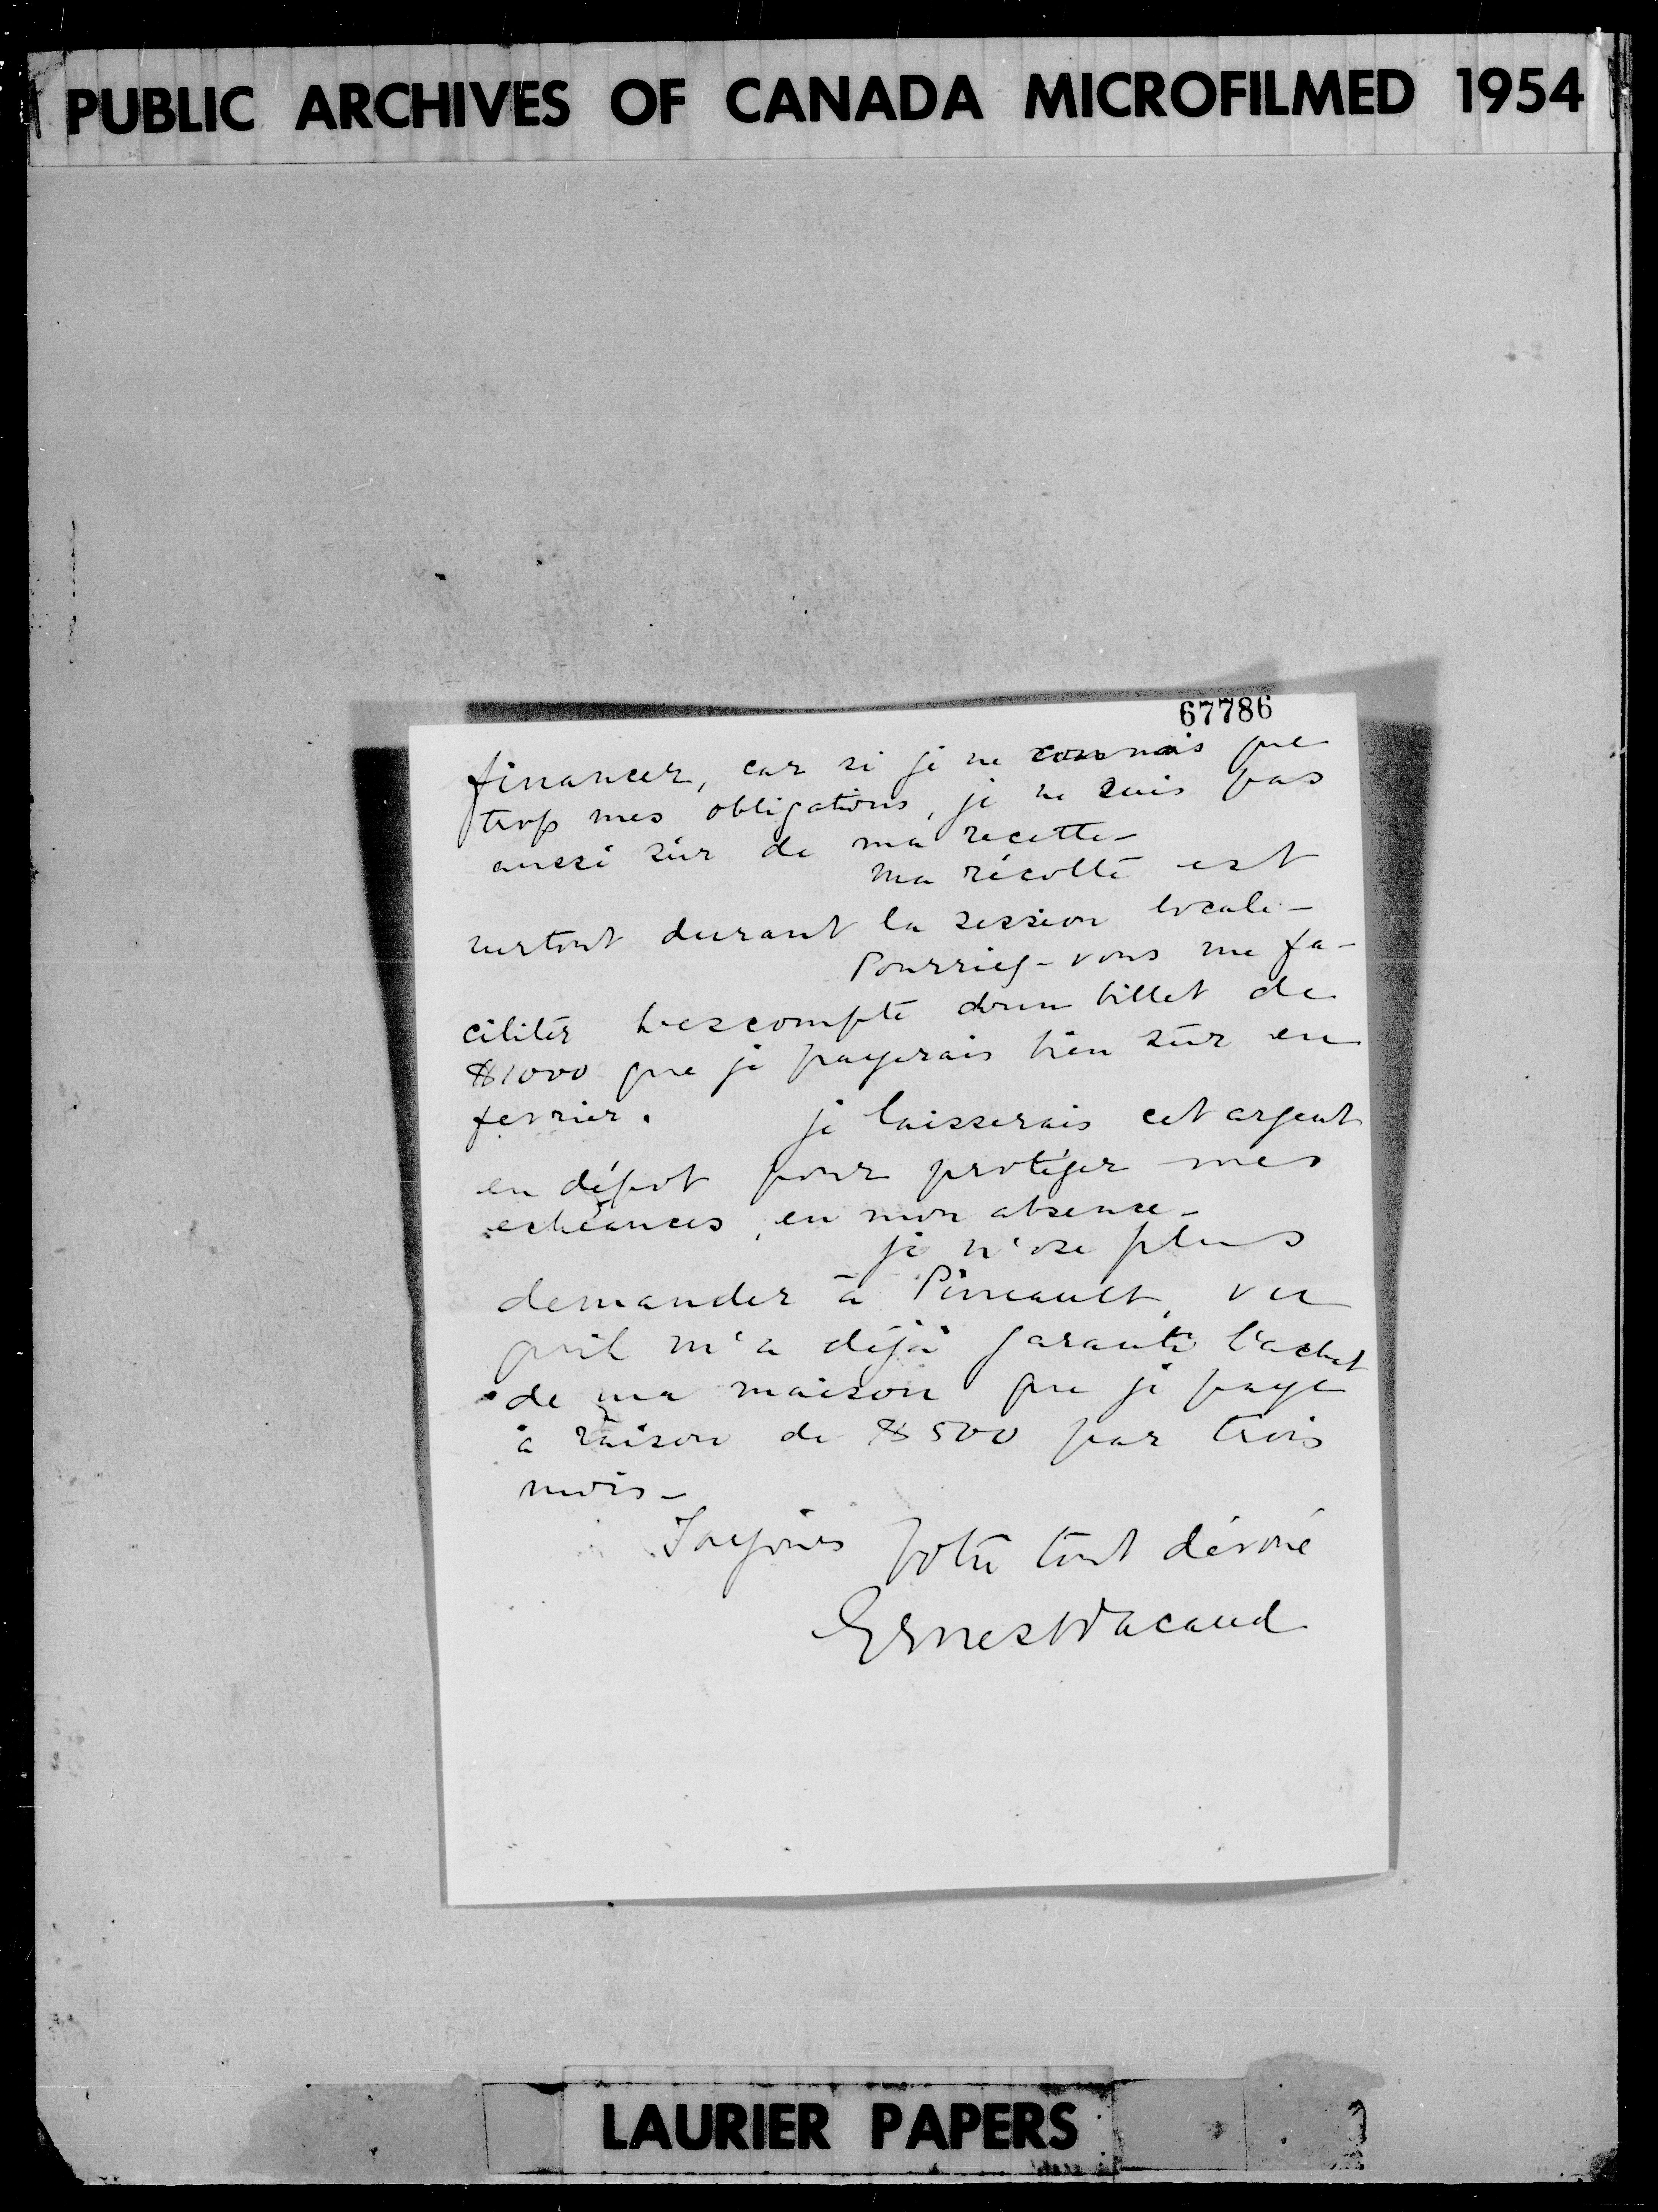 PUBLIC ARCHIVES OF CANADA MICROFILMED 1954
67786
financer, car si je ne connais que
trop mes obligations, je ne suis pas
aussi sûr de ma recette -
Ma récolte est
surtout durant la session locale -
Pourriez-vous me fa-
ciliter l'escompte d'un billet de
$1000 que je payerais bien sûr en
fevrier. je laisserais cet argent
en dépot pour protéger mes
echéances, en mon absence -
je n'ose plus
demander à Pineault, vu
qu'il m'a déjà garanti l'achat
de ma maison que je paye
à raison de $500 par trois
mois -
Toujours Votre tout dévoué
Ernest Pacaud
LAURIER PAPERS